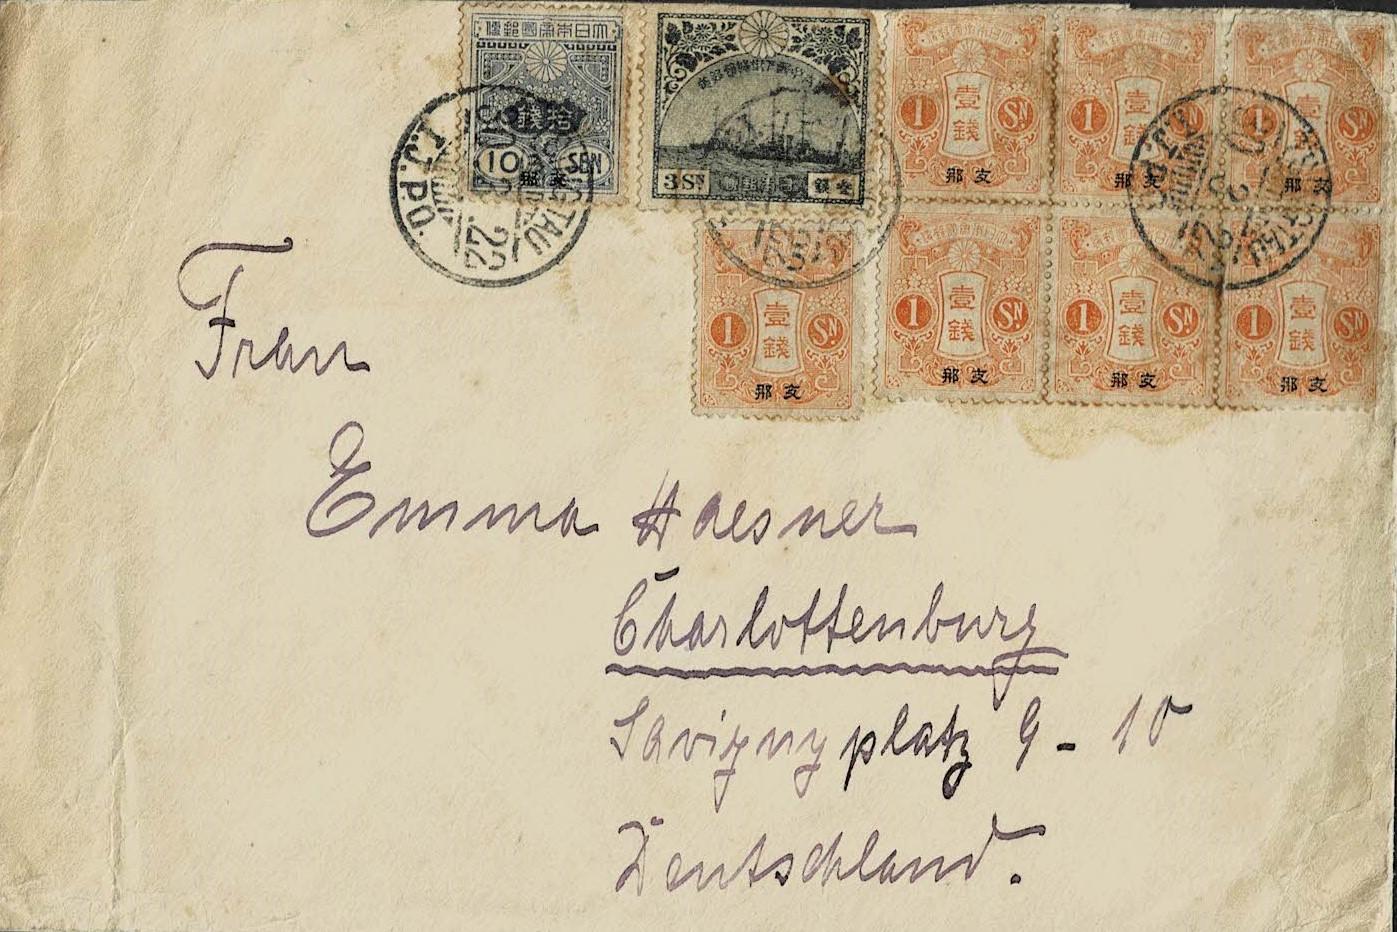 大日本帝國郵便
拾錢
10 SEN
支那
3 Sɴ
壹錢
1 Sɴ
支那
壹錢
1 Sɴ
支那
壹錢
1 Sɴ
支那
壹錢
1 Sɴ
支那
壹錢
1 Sɴ
支那
壹錢
1 Sɴ
支那
壹錢
1 Sɴ
支那
I.J.P.O.
22
Frau
Emma Haesner
Charlottenburg
Savignyplatz 9-10
Deutschland.